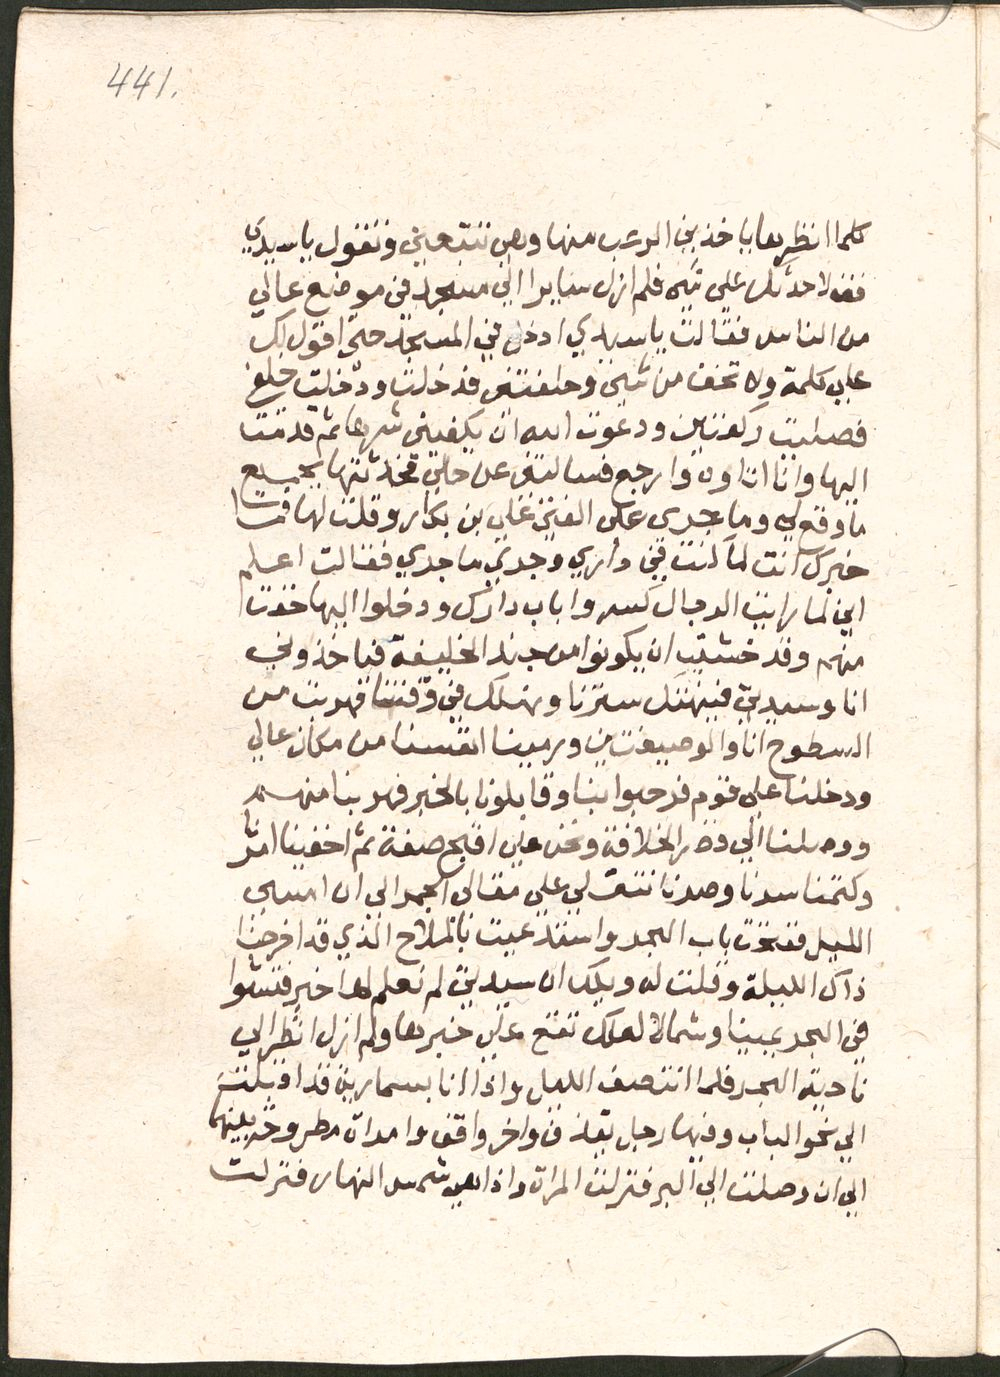 441.
كلما انظرها ياخذني الرعب منها وهي تتبعني وتقول يا سيدي
قف لاحدثك على شي فلم ازل سايرا الي مسجد في موضع خالي
من الناس فقالت يا سيدي ادخل في المسجد حتى اقول لك
علي كلمة ولا تخف من شي وحلفتني فدخلت ودخلت خلفي
فصليت ركعتين ودعوت الله ان يكفيني شرها ثم قدمت
اليها وانا اتاوه وارجع فسالتني عن حالي فحدثتها بجميع
ما وقع لي وما جرى على الفتي علي بن بكار وقلت لها فما
خبرك انت لما كنت في داري وجري ما جري فقالت اعلم
اني لما رايت الرجال كسروا باب دارك ودخلوا اليها خفت
منهم وقد خشيت ان يكونوا من جند الخليفة فياخذوني
انا وسيدتي فينهتك سترنا ونهلك في وقتنا فهربت من
السطوح انا والوصيفتين ورمينا انفسنا من مكان عالي
ودخلنا على قوم فرحبوا بنا وقابلونا بالخير فهربنا منهم
ووصلنا الي قصر الخلافة ونحن علي اقبح صفة ثم اخفينا امرنا
وكتمنا سرنا وصرنا نتقلى على مقالي الجمر الى ان امسى
الليل ففتحت باب البحر واستدعيت بالملاح الذي قد اخرجنا
ذاك الليلة وقلت له ويلك ان سيدتي لم نعلم لها خبر فتشوا
في البحر يمينا وشمالا لعلك تقع على خبرها ولم ازل انظر الي
ناحية البحر فلما انتصف الليل واذا انا بسمارين قد اقبلت
الي نحو الباب وفيها رجل يقدف واخر واقف وامراة مطروحة بينهما
الي ان وصلت الي البر فنزلت المراة واذا هي شمس النهار فنزلت